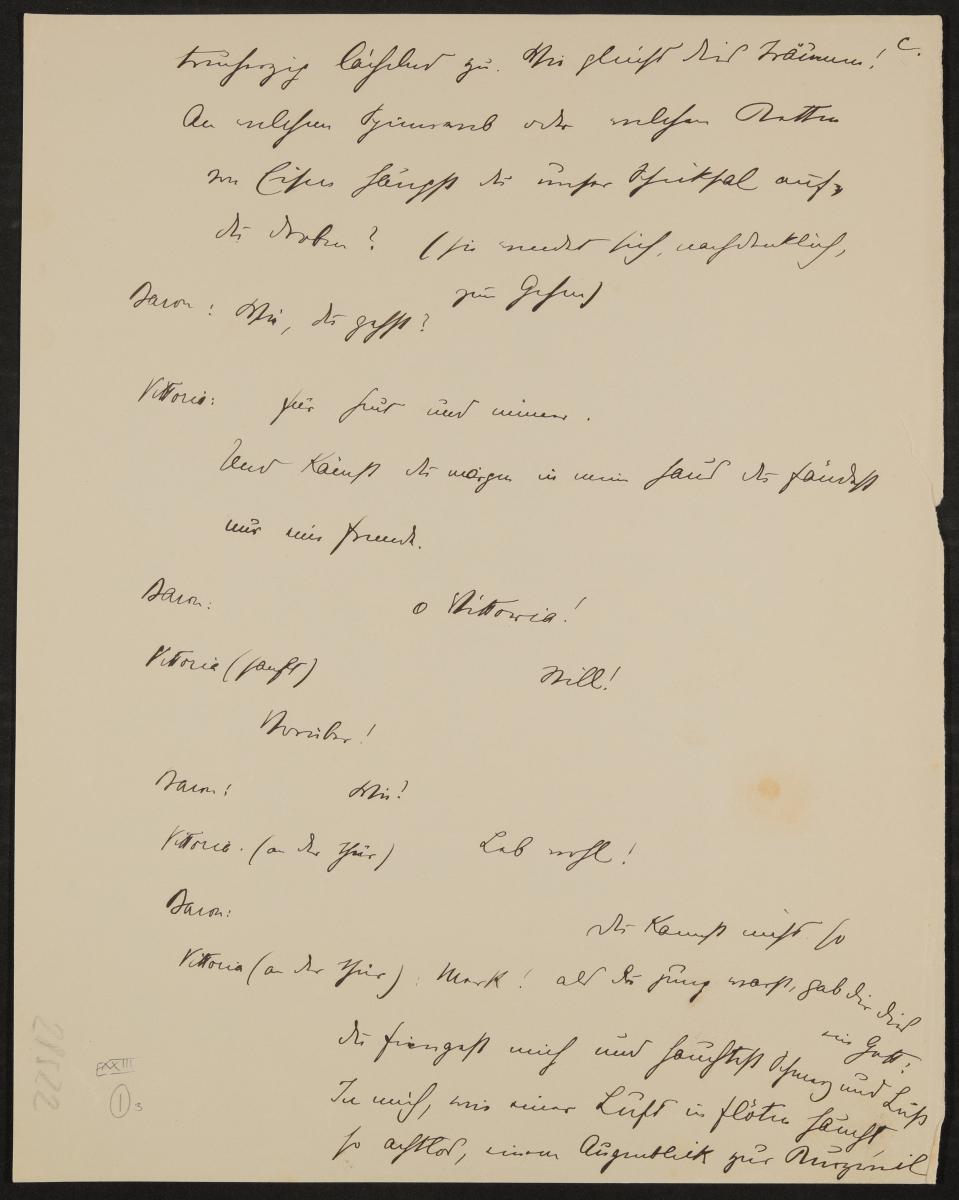 c.
treuherzig lächelnd zu. Wie gleicht dies Träumen!
An welchem Spinnweb oder welchen Ketten
von Eisen hängst du unser Schicksal auf,
du droben? (sie wendet sich, nachdenklich,
zum Gehen)
Baron: Wie, du gehst?
Vittoria: für heut und immer.
Und kämst du morgen in mein Haus du fändest
nur eine fremde.
Baron: o Vittoria!
Vittoria (sanft) Still!
Vorüber!
Baron: Wie?
Vittoria. (an der Thür) Leb wohl!
Baron: du kannst nicht so
Vittoria (an der Thür): Merk! als du jung warst, gab dir dies
ein Gott:
du fiengest mich und hauchtest Schmerz und Lust
In mich, wie einer Luft in flöten haucht
so achtlos, einem Augenblick zur Kurzweil
28522
FAXIII
1 3